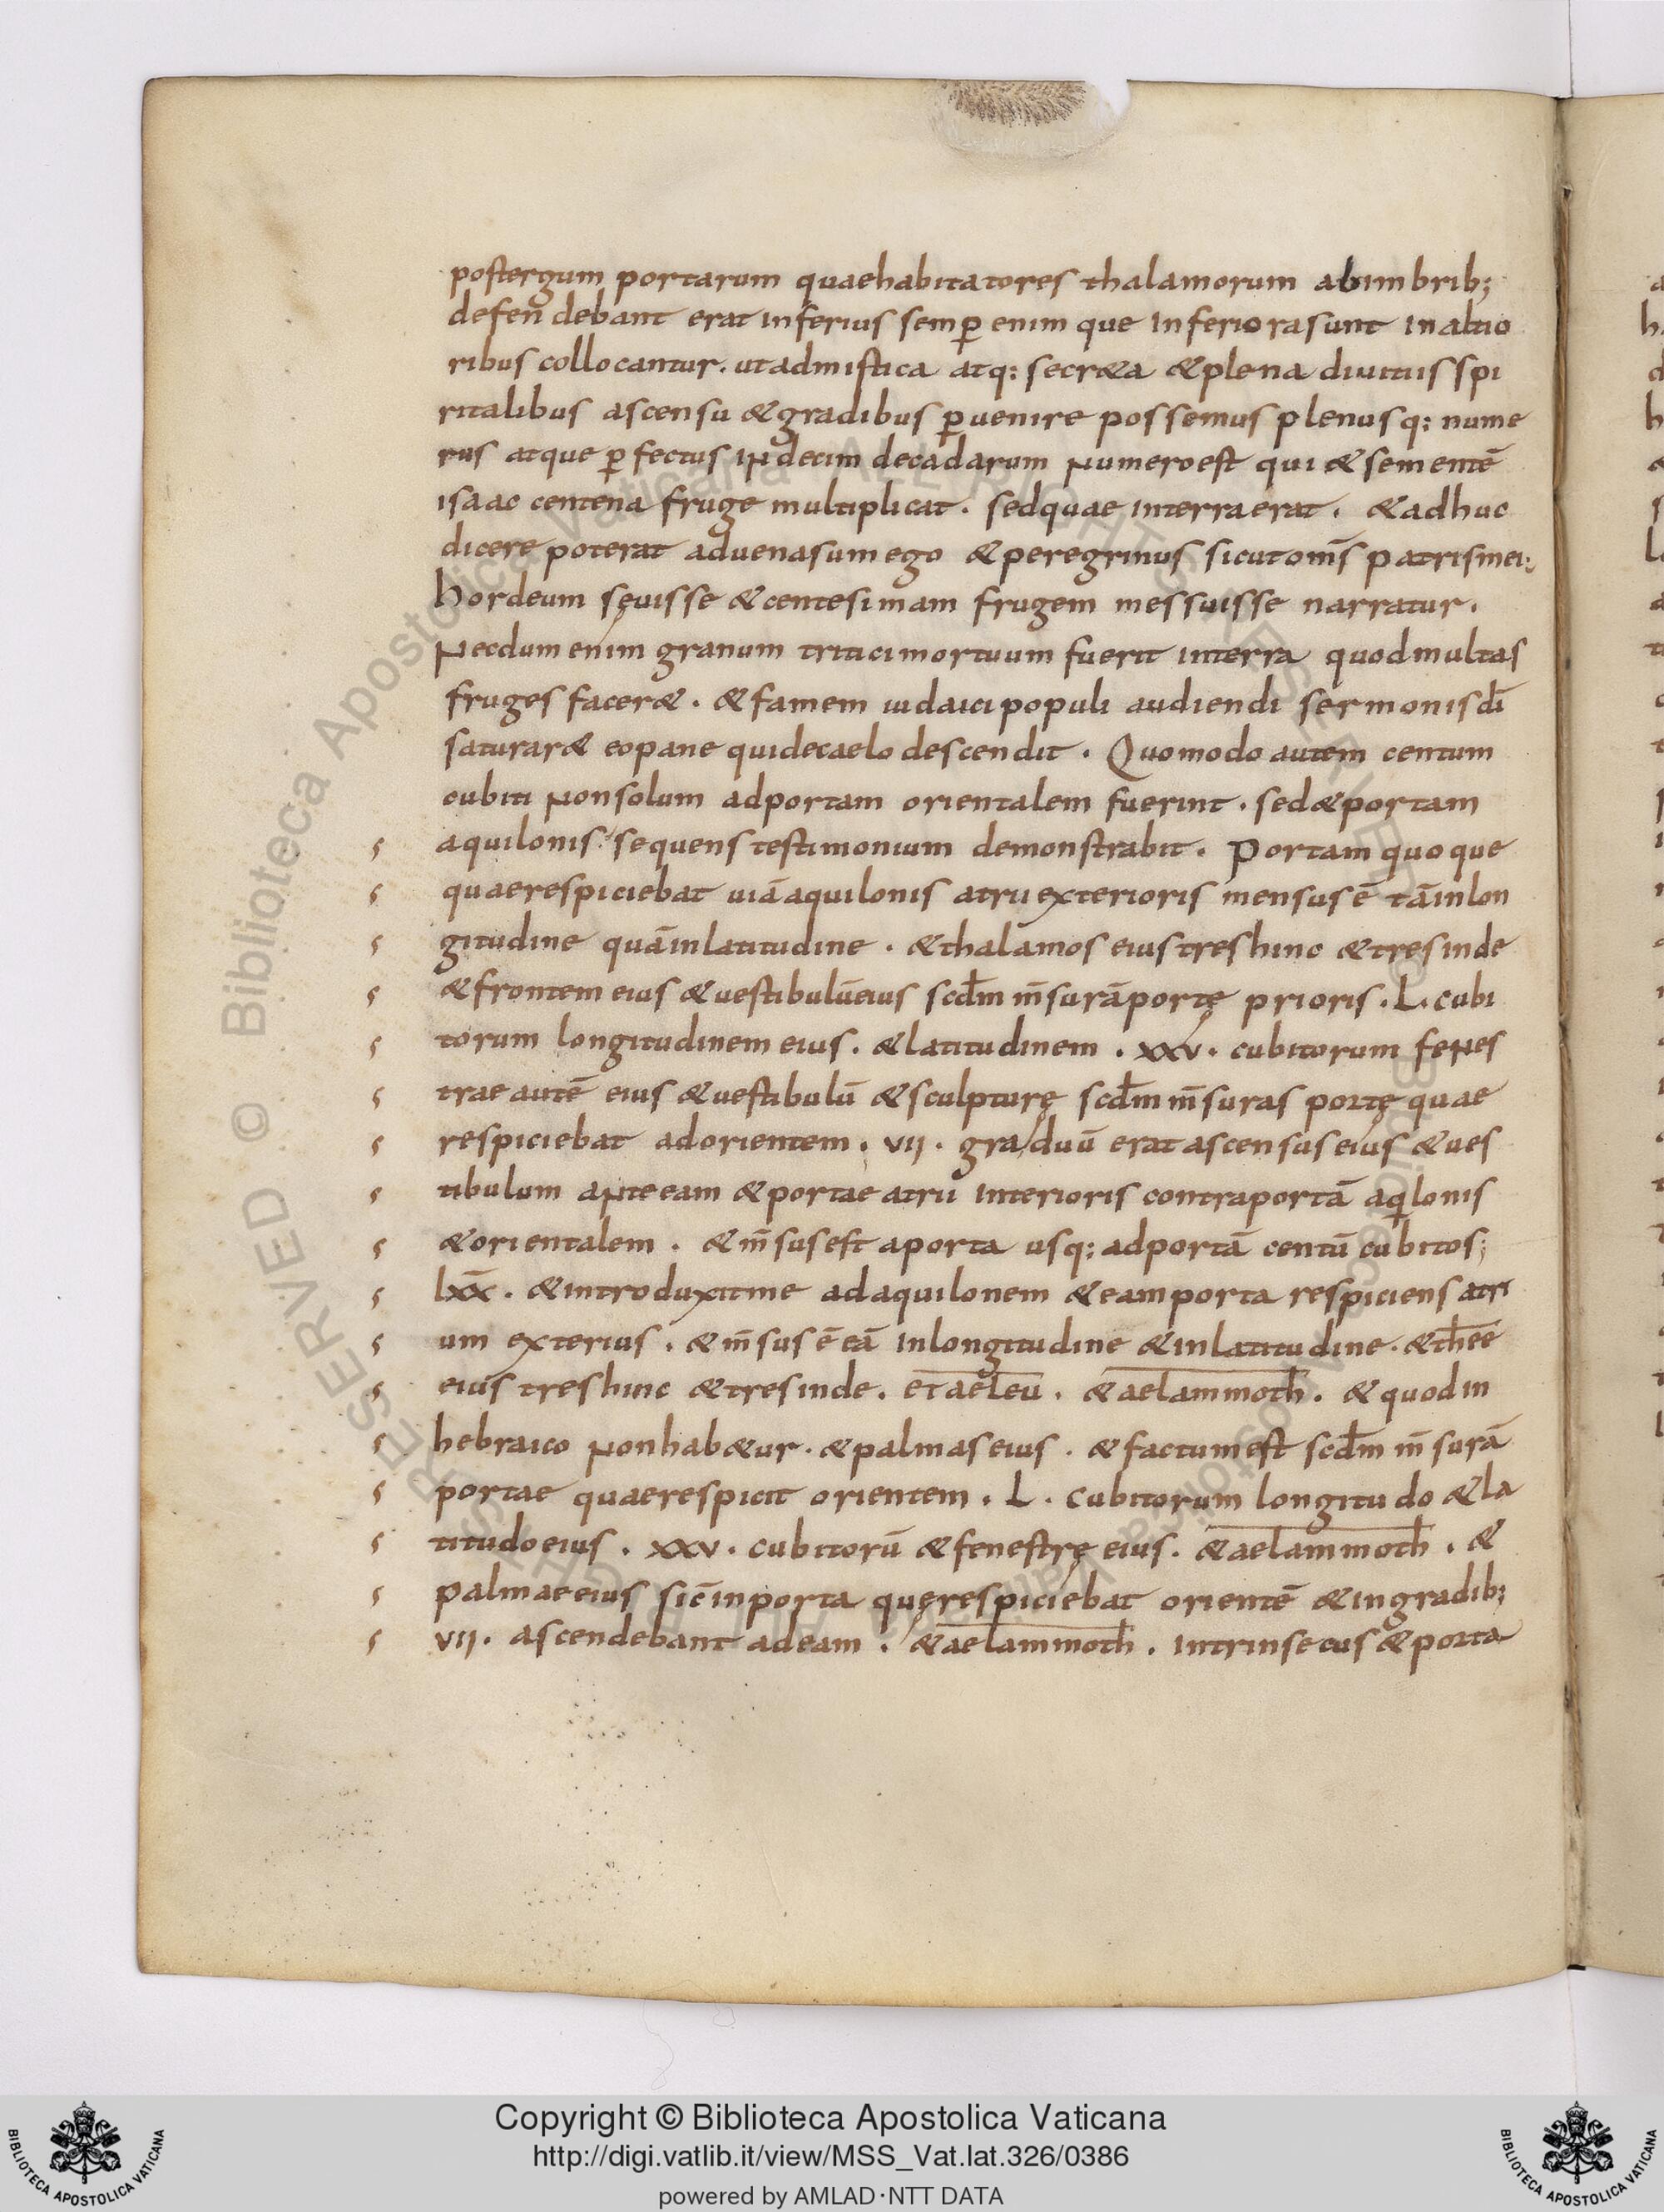 postergum portarum quae habitatores thalamorum ab imbrib;
defen̄debant erat inferius semꝑ enim que inferiora sunt in altio
ribus collocantur. ut ad mistica atq: secr&a & plena diuitiis spi
ritalibus ascensu & gradibus ꝑuenire possemus plenusq: nume
rus atque ꝑfectus in decim decadarum numero est qui & sementē
isaac centena fruge multiplicat. sed quae in terra erat. & adhuc
dicere poterat aduena sum ego & peregrinus sicut om̄s patris mei.
hordeum sęuisse & centesimam frugem messuisse narratur.
necdum enim granum tritici mortuum fuerit in terra quod multas
fruges facer&. & famem iudaici populi audiendi sermonis dī
saturar& eo pane qui de caelo descendit. Quomodo autem centum
cubiti non solum ad portam orientalem fuerint. sed & portam
aquilonis sequens testimonium demonstrabit. Portam quoque
quae respiciebat uiā aquilonis atrii exterioris mensus ē tā in lon
gitudine quā in latitudine. & thalamos eius tres hinc & tres inde
& frontem eius & uestibulū eius scd̄m m̄surā portę prioris. L. cubi
torum longitudinem eius. & latitudinem. xxv. cubitorum fenes
trae autē eius & uestibulū & sculpturę scd̄m m̄suras portę quae
respiciebat ad orientem. vii. graduū erat ascensus eius & ues
tibulum ante eam & portae atrii interioris contra portā aqilonis
& orientalem. & m̄sus est a porta usq: ad portā centū cubitos;
lxx̄. & introduxit me ad aquilonem & eam porta respiciens atri
um exterius. & m̄sus ē eā in longitudine & in latitudine. & thee
eius tres hinc & tres inde. et aeleu. & aelammoth. & quod in
hebraico non hab&ur. & palmas eius. & factum est scd̄m m̄surā
portae quae respicit orientem. L. cubitorum longitudo & la
titudo eius. xxv. cubitorū & fenestrę eius. & aelammoth. &
palmae eius sic̄ in porta quę respiciebat orientē & in gradib;
vii. ascendebant ad eam. & aelammoth. intrinsecus & porta
Copyright © Biblioteca Apostolica Vaticana
http://digi.vatlib.it/view/MSS_Vat.lat.326/0386
powered by AMLAD·NTT DATA
BIBLIOTECA APOSTOLICA VATICANA
BIBLIOTECA APOSTOLICA VATICANA